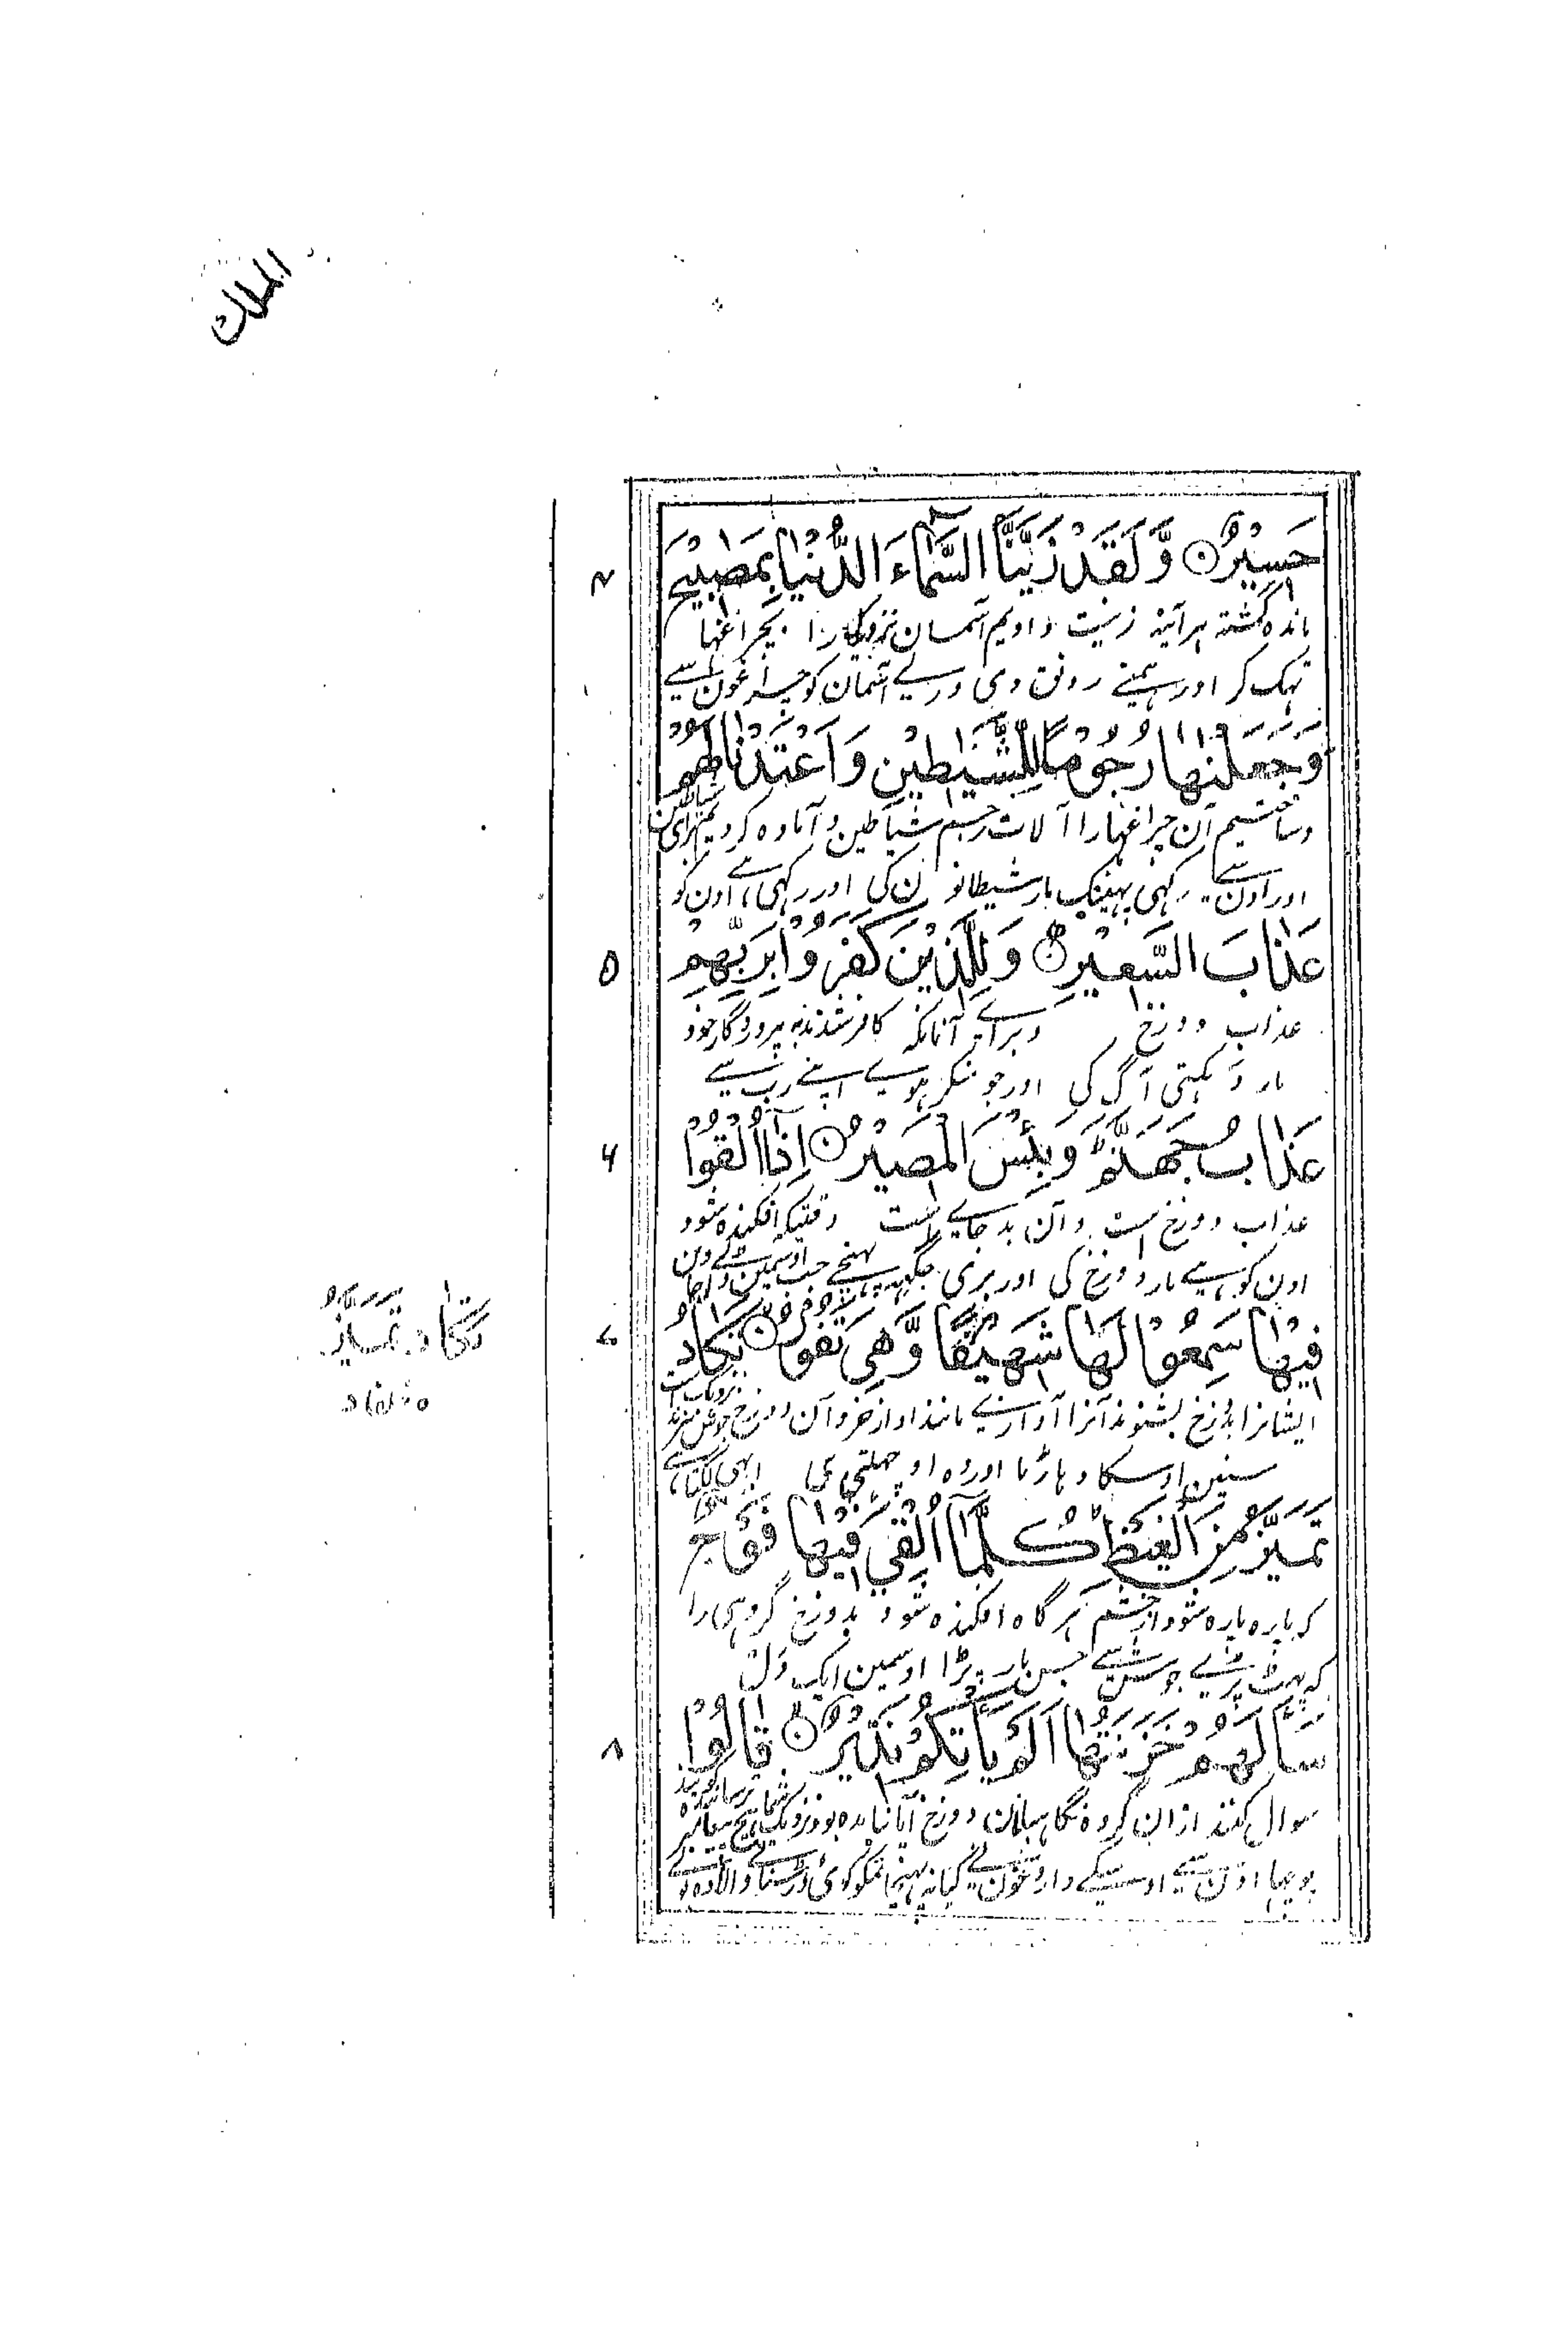 الملك
حَسِيْرٌ ۝ وَّلَقَدْ زَيَّنَّا السَّمَآءَ الدُّنْيَا بِمَصٰبِيْحَ
۴
مانده گشته هرآئینه زینت دادیم آسمان نزدیک را بچراغها
تهک کر اور ہمنے رونق دی ورلے آسمان کو چراغون سے
وَجَعَلْنٰهَا رُجُوْمًا لِّلشَّيٰطِيْنِ وَاَعْتَدْنَا لَهُمْ
وساختیم آن چراغها را آلات رجم شیاطین و آماده کردیم برای شیاطین
اور اون سے رکهی پهینک مار شیطانون کی اور رکهی ہے اون کو
عَذَابَ السَّعِيْرِ ۝ وَلِلَّذِيْنَ كَفَرُوْا بِرَبِّهِمْ
۵
عذاب دوزخ وبرائے آنانکه کافر شدند به پروردگار خود
مار دہکتی آگ کی اور جو منکر ہوے اپنے رب سے
عَذَابُ جَهَنَّمَ ؕ وَبِئْسَ الْمَصِيْرُ ۝ اِذَاۤ اُلْقُوْا
۶
عذاب دوزخ است و آن بد جایے است وقتیکه افکنده شود
اون کو ہے مار دوزخ کی اور بری جگہہ پہنچے جب اوسمین
فِيْهَا سَمِعُوْا لَهَا شَهِيْقًا وَّهِىَ تَفُوْرُ ۝ تَكَادُ
۷
ایشانرا بدوزخ بشنوند آنرا آوازے مانند آواز خر و آن دوزخ جوش میزند نزدیک است
سنین اوسکا دہاڑنا اور وہ اوچهلتی ہی ابہی لگتا ہے
تَمَيَّزُ مِنَ الْغَيْظِ ؕ كُلَّمَاۤ اُلْقِىَ فِيْهَا فَوْجٌ
که پاره پاره شود از خشم هرگاه افکنده شود بدوزخ گروهی را
که پہٹ پڑے جوش سے جس بار پڑا اوسمین ایک دل
سَاَلَهُمْ خَزَنَتُهَاۤ اَلَمْ يَاْتِكُمْ نَذِيْرٌ ۝ قَالُوْا
۸
سوال کنند ازان گروه نگاهبانان دوزخ آیا نیامده بود نزدیک شما هیچ پیغامبر ترساننده گویند
پوچہا اون سے اوسکے داروغون نے کیا نہ پہنچا تمکو کوئی ڈر سنانے والا وہ بولے
تَكَادُ تَمَيَّزُ